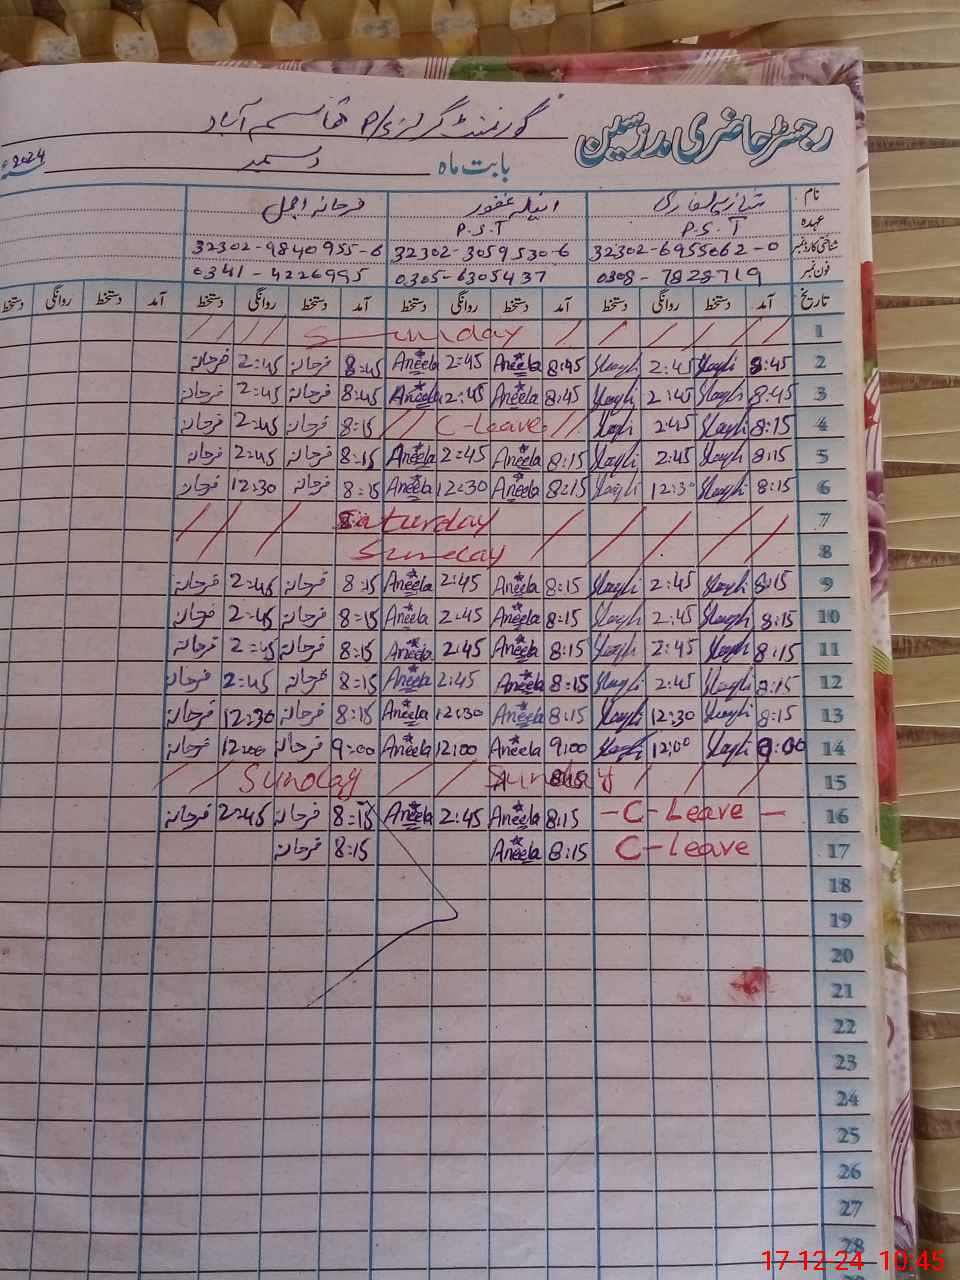 رجسٹر حاضری مدرسین گورنمنٹ گرلز P/S قاسم آباد
بابت ماہ دسمبر سنہ 2024ء
نام شازیہ لغاری انیلہ غفور فرحانہ اجمل
عہدہ P.S.T P.S.T
شناختی کارڈ نمبر 32302-6955062-0 32302-3059530-6 32302-9840955-6
فون نمبر 0308-7828719 0305-6305437 0341-4226995
تاریخ آمد دستخط روانگی دستخط آمد دستخط روانگی دستخط آمد دستخط روانگی دستخط آمد دستخط روانگی دستخط
1 Sunday
2 8:45 2:45 8:45 Aneela 2:45 Aneela 8:45 فرحانہ 2:45 فرحانہ
3 8:45 2:45 8:45 Aneela 2:45 Aneela 8:45 فرحانہ 2:45 فرحانہ
4 8:15 2:45 C-Leave 8:15 فرحانہ 2:45 فرحانہ
5 8:15 2:45 8:15 Aneela 2:45 Aneela 8:15 فرحانہ 2:45 فرحانہ
6 8:15 12:30 8:15 Aneela 12:30 Aneela 8:15 فرحانہ 12:30 فرحانہ
7 Saturday
8 Sunday
9 8:15 2:45 8:15 Aneela 2:45 Aneela 8:15 فرحانہ 2:45 فرحانہ
10 8:15 2:45 8:15 Aneela 2:45 Aneela 8:15 فرحانہ 2:45 فرحانہ
11 8:15 2:45 8:15 Aneela 2:45 Aneela 8:15 فرحانہ 2:45 فرحانہ
12 8:15 2:45 8:15 Aneela 2:45 Aneela 8:15 فرحانہ 2:45 فرحانہ
13 8:15 12:30 8:15 Aneela 12:30 Aneela 8:15 فرحانہ 12:30 فرحانہ
14 9:00 12:00 9:00 Aneela 12:00 Aneela 9:00 فرحانہ 12:00 فرحانہ
15 Sunday Sunday
16 -C-Leave- 8:15 Aneela 2:45 Aneela 8:15 فرحانہ 2:45 فرحانہ
17 C-leave 8:15 Aneela 8:15 فرحانہ
18
19
20
21
22
23
24
25
26
27
28
17-12-24 10:45